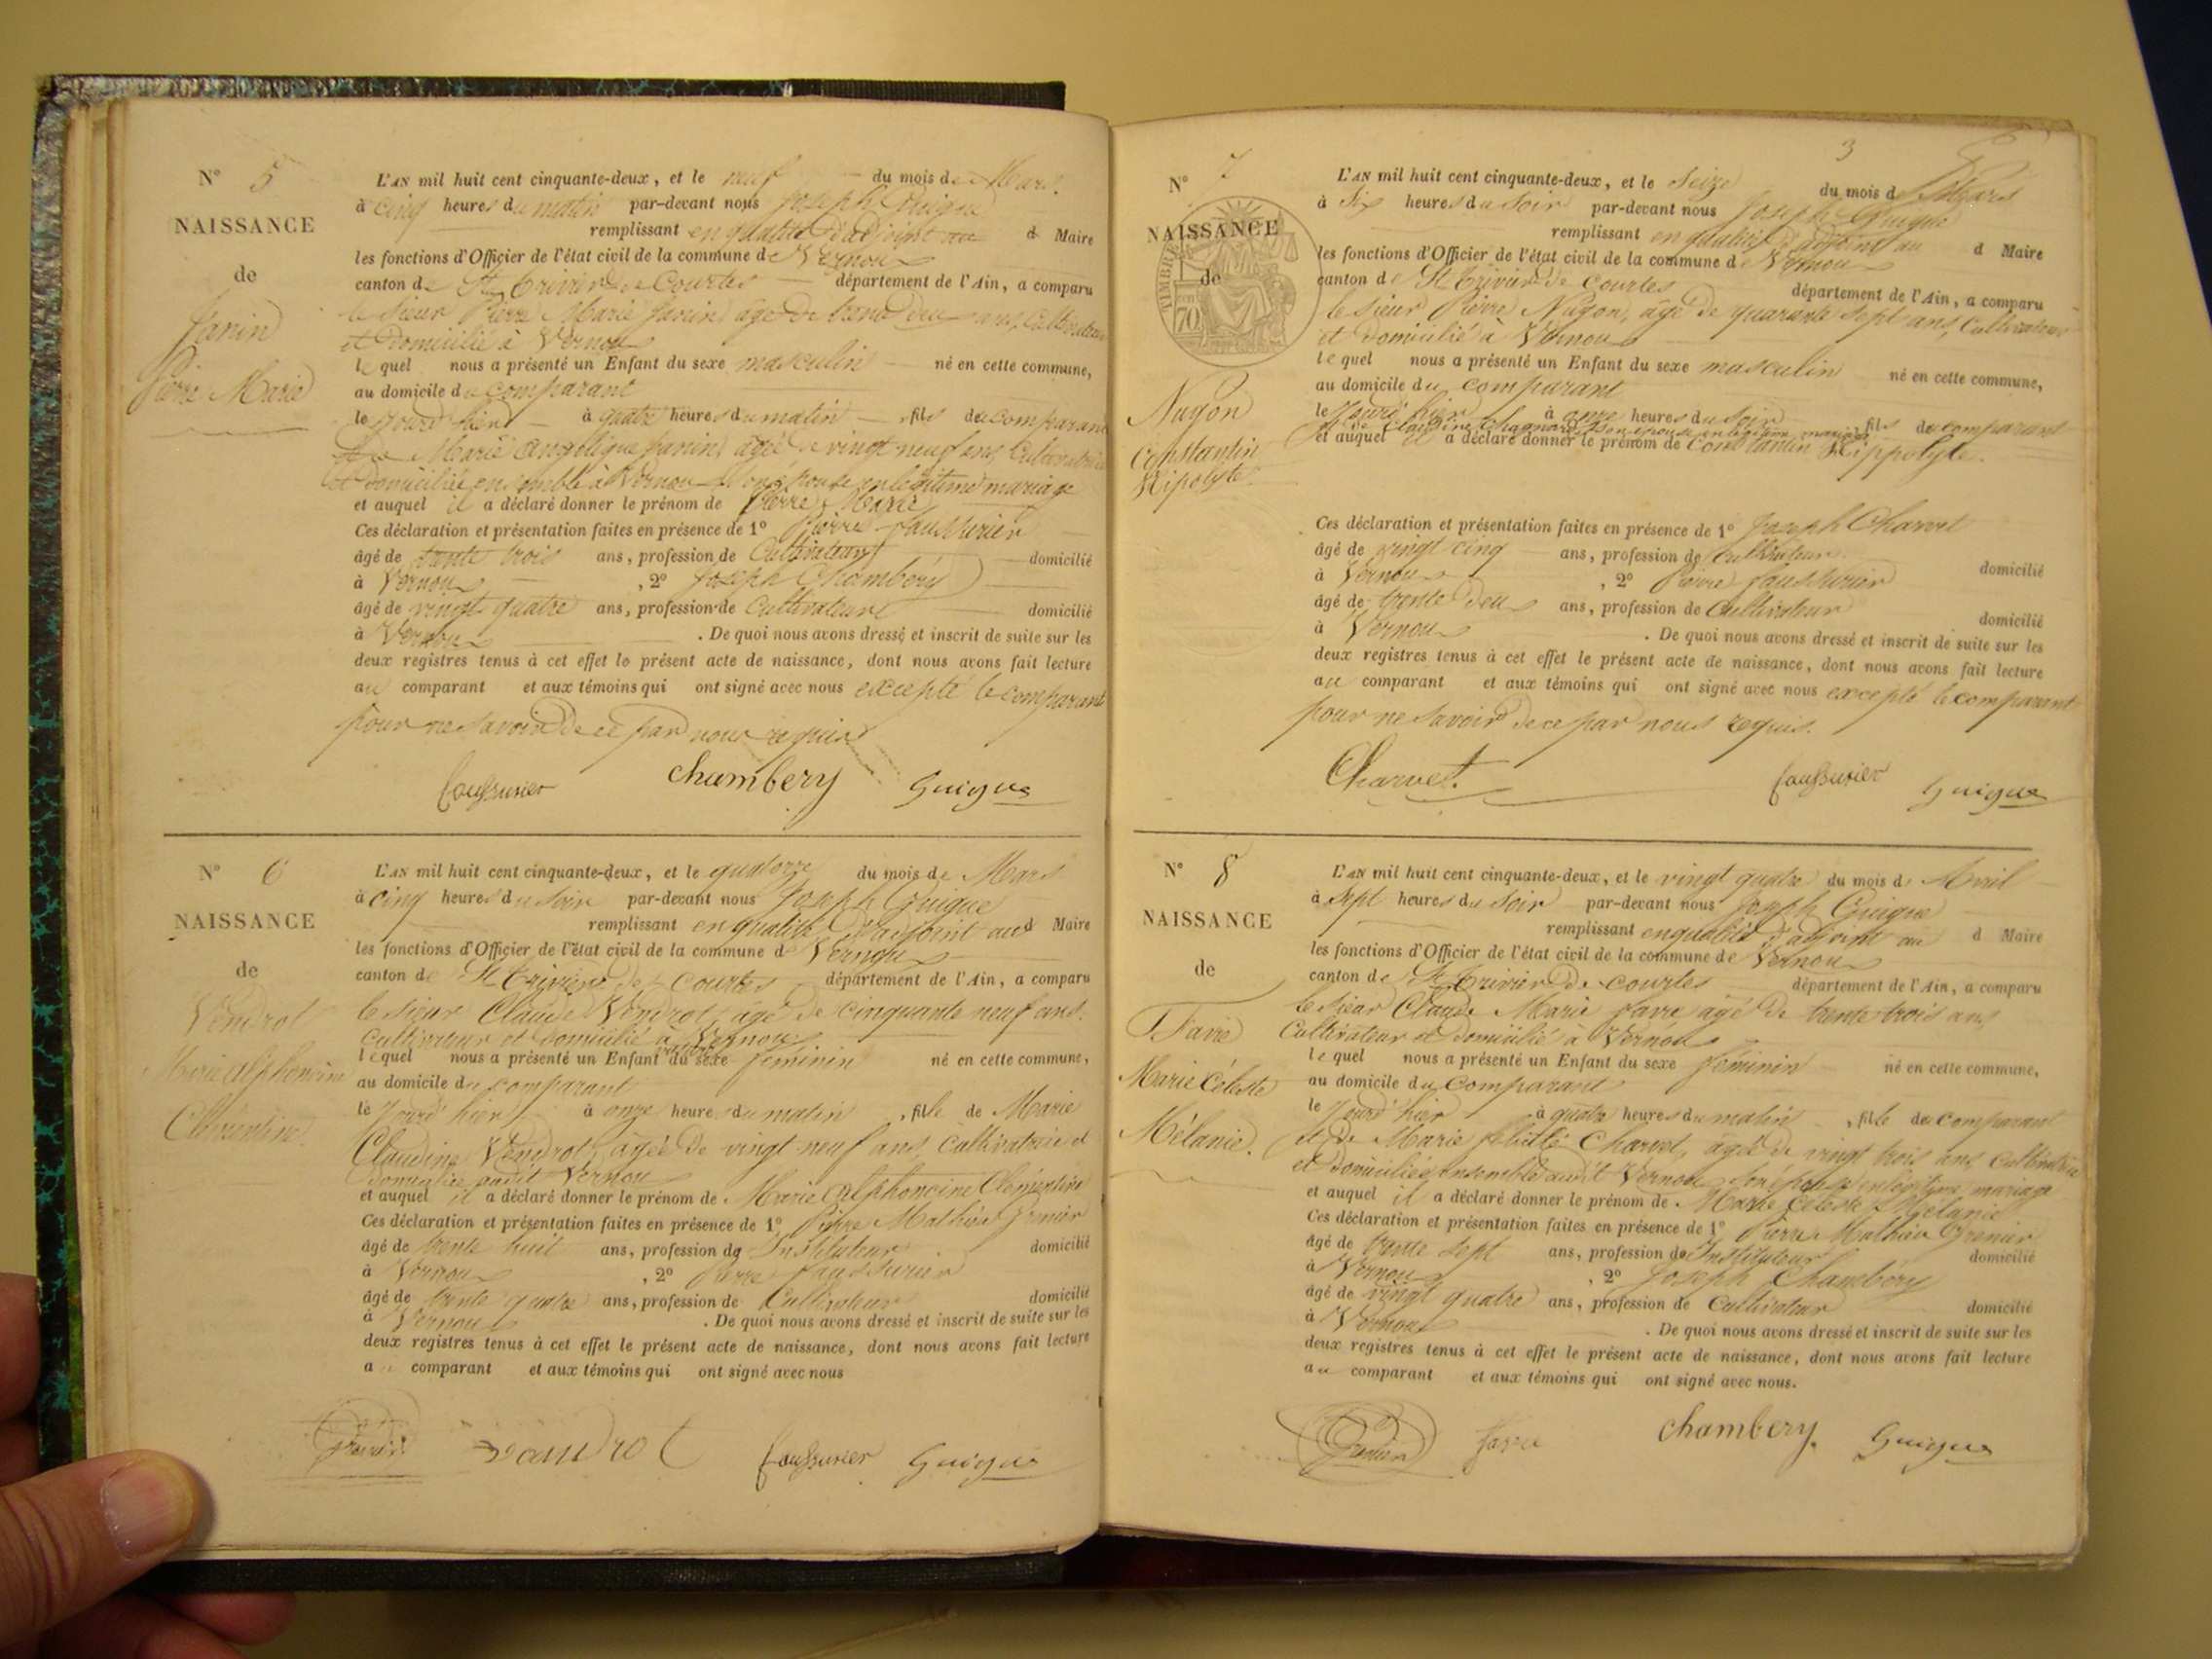 N° 5
NAISSANCE
de
Janin
Pierre Marie
L'AN mil huit cent cinquante-deux, et le neuf du mois de Mars
à cinq heures du matin par-devant nous Joseph Guigue
remplissant en qualité d'adjoint au d Maire
les fonctions d'Officier de l'état civil de la commune de Vernoux
canton de St Trivier de Courtes département de l'Ain, a comparu
le sieur Pierre Marie Janin âgé de trente deux ans, Cultivateur
et domicilié à Vernoux
lequel nous a présenté un Enfant du sexe masculin né en cette commune,
au domicile du comparant
le jourd'hier à quatre heures du matin fils du comparant
Marie Angélique Janin âgée de vingt neuf ans, Cultivatrice
et domiciliée ensemble à Vernoux son épouse en légitime mariage
et auquel il a déclaré donner le prénom de Pierre Marie
Ces déclaration et présentation faites en présence de 1° Pierre Faussurier
âgé de trente trois ans, profession de Cultivateur domicilié
à Vernoux , 2° Joseph Chambéry
âgé de vingt quatre ans, profession de Cultivateur domicilié
à Vernoux . De quoi nous avons dressé et inscrit de suite sur les
deux registres tenus à cet effet le présent acte de naissance, dont nous avons fait lecture
au comparant et aux témoins qui ont signé avec nous excepté le comparant
pour ne savoir de ce par nous requis
Faussurier chambery Guigue
N° 6
NAISSANCE
de
Vendrot
Marie Alphoncine
Clémentine.
L'AN mil huit cent cinquante-deux, et le quatorze du mois de Mars
à cinq heures du soir par-devant nous Joseph Guigue
remplissant en qualité d'adjoint au d Maire
les fonctions d'Officier de l'état civil de la commune de Vernoux
canton de St Trivier de Courtes département de l'Ain, a comparu
le sieur Claude Vendrot, âgé de cinquante neuf ans.
Cultivateur et domicilié à Vernoux
lequel nous a présenté un Enfant du sexe féminin né en cette commune,
au domicile du comparant
le jourd'hier à onze heures du matin , fille de Marie
Claudine Vendrot, âgée de vingt neuf ans, Cultivatrice et
domiciliée audit Vernoux
et auquel il a déclaré donner le prénom de Marie Alphoncine Clémentine
Ces déclaration et présentation faites en présence de 1° Pierre Mathieu Grenier
âgé de trente huit ans, profession de Instituteur domicilié
à Vernoux , 2° Pierre Faussurier
âgé de trente quatre ans, profession de Cultivateur domicilié
à Vernoux . De quoi nous avons dressé et inscrit de suite sur les
deux registres tenus à cet effet le présent acte de naissance, dont nous avons fait lecture
a comparant et aux témoins qui ont signé avec nous
Grenier Vandrot Faussurier Guigue
3
N° 7
NAISSANCE
de
TIMBRE
70
Nugon
Constantin
Hipolyte
L'AN mil huit cent cinquante-deux, et le Seize du mois d Mars
à Six heures du Soir par-devant nous Joseph Guigue
remplissant en qualité d'adjoint au d Maire
les fonctions d'Officier de l'état civil de la commune de Vernoux
canton de St Trivier de Courtes département de l'Ain, a comparu
le sieur Pierre Nugon, âgé de quarante sept ans, Cultivateur
et domicilié à Vernoux
lequel nous a présenté un Enfant du sexe masculin né en cette commune,
au domicile du comparant
le jourd'hier à onze heures du soir fils du comparant
et de Claudine son épouse en légitime mariage
et auquel il a déclaré donner le prénom de Constantin Hippolyte.
Ces déclaration et présentation faites en présence de 1° Joseph Charvet
âgé de vingt cinq ans, profession de Cultivateur domicilié
à Vernoux , 2° Pierre Faussurier
âgé de trente deux ans, profession de Cultivateur domicilié
à Vernoux . De quoi nous avons dressé et inscrit de suite sur les
deux registres tenus à cet effet le présent acte de naissance, dont nous avons fait lecture
au comparant et aux témoins qui ont signé avec nous excepté le comparant
pour ne savoir de ce par nous requis.
Charvet. Faussurier Guigue
N° 8
NAISSANCE
de
Favre
Marie Céleste
Mélanie.
L'AN mil huit cent cinquante-deux, et le vingt quatre du mois d Avril
à Sept heures du Soir par-devant nous Joseph Guigue
remplissant en qualité d'adjoint au d Maire
les fonctions d'Officier de l'état civil de la commune de Vernoux
canton de St Trivier de Courtes département de l'Ain, a comparu
le sieur Claude Marie Favre âgé de trente trois ans
Cultivateur et domicilié à Vernoux
lequel nous a présenté un Enfant du sexe féminin né en cette commune,
au domicile du Comparant
le jourd'hier à quatre heures du matin , fille du comparant
et de Marie Charvet, âgée de vingt trois ans Cultivatrice
et domiciliée ensemble audit Vernoux son épouse en légitime mariage
et auquel il a déclaré donner le prénom de Marie Céleste Mélanie
Ces déclaration et présentation faites en présence de 1° Pierre Mathieu Grenier
âgé de trente sept ans, profession de Instituteur domicilié
à Vernoux , 2° Joseph Chambéry
âgé de vingt quatre ans, profession de Cultivateur domicilié
à Vernoux . De quoi nous avons dressé et inscrit de suite sur les
deux registres tenus à cet effet le présent acte de naissance, dont nous avons fait lecture
au comparant et aux témoins qui ont signé avec nous.
Grenier Favre chambery. Guigue